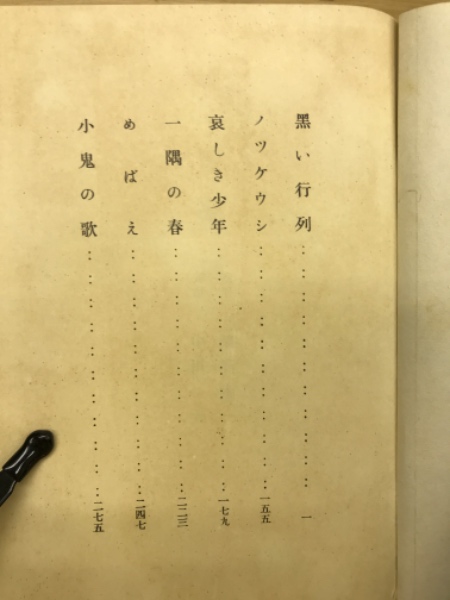 黑い行列‥‥‥‥‥‥‥‥‥‥‥‥‥一
ノツケウシ‥‥‥‥‥‥‥‥‥‥‥‥‥一五五
哀しき少年‥‥‥‥‥‥‥‥‥‥‥‥‥一七九
一隅の春‥‥‥‥‥‥‥‥‥‥‥‥‥二二三
めばえ‥‥‥‥‥‥‥‥‥‥‥‥‥二四七
小鬼の歌‥‥‥‥‥‥‥‥‥‥‥‥‥二七五